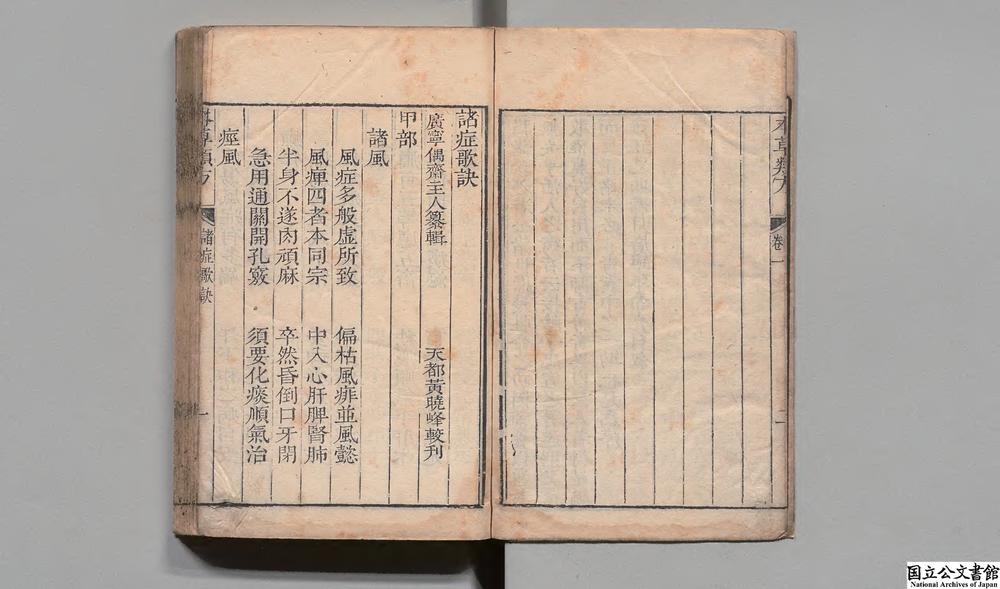 本草類方
卷一
諸症歌訣
廣寧偶齋主人纂輯 天都黃曉峰較刊
甲部
諸風
風症多般虛所致 偏枯風痱並風懿
風痺四者本同宗 中入心肝脾腎肺
半身不遂肉頑麻 卒然昏倒口牙閉
急用通關開孔竅 須要化痰順氣治
痙風
本草類方
諸症歌訣
一
国立公文書館
National Archives of Japan